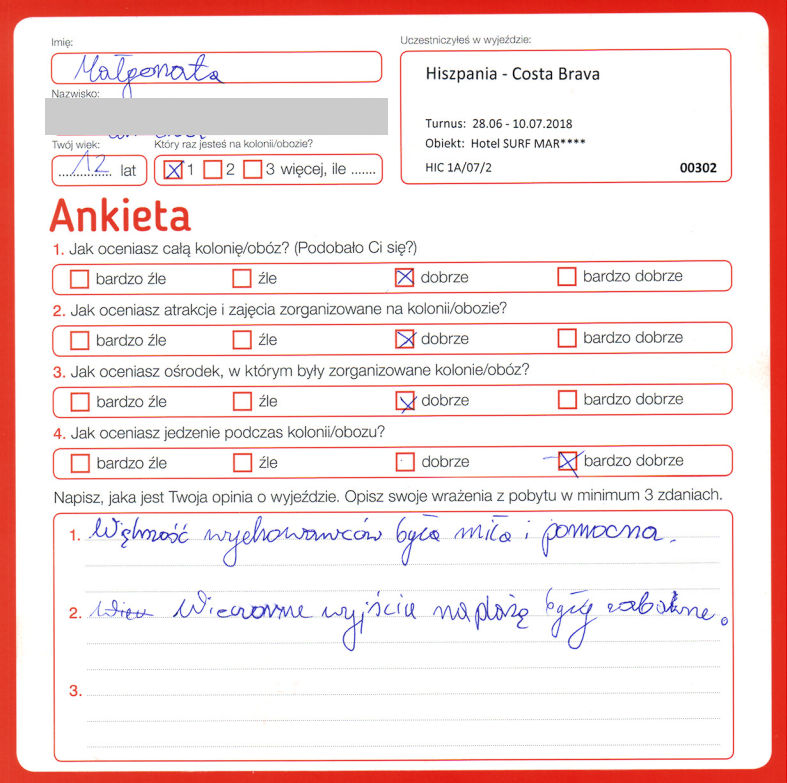 Imię:
Małgorzata
Nazwisko:
Twój wiek:
12 lat
Który raz jesteś na kolonii/obozie?
1 2 3 więcej, ile .......
Uczestniczyłeś w wyjeździe:
Hiszpania - Costa Brava
Turnus: 28.06 - 10.07.2018
Obiekt: Hotel SURF MAR****
HIC 1A/07/2 00302
Ankieta
1. Jak oceniasz całą kolonię/obóz? (Podobało Ci się?)
bardzo źle źle dobrze bardzo dobrze
2. Jak oceniasz atrakcje i zajęcia zorganizowane na kolonii/obozie?
bardzo źle źle dobrze bardzo dobrze
3. Jak oceniasz ośrodek, w którym były zorganizowane kolonie/obóz?
bardzo źle źle dobrze bardzo dobrze
4. Jak oceniasz jedzenie podczas kolonii/obozu?
bardzo źle źle dobrze bardzo dobrze
Napisz, jaka jest Twoja opinia o wyjeździe. Opisz swoje wrażenia z pobytu w minimum 3 zdaniach.
1. Większość wychowawców była miła i pomocna.
2. Wieczorne wyjścia na plażę były zabawne.
3.